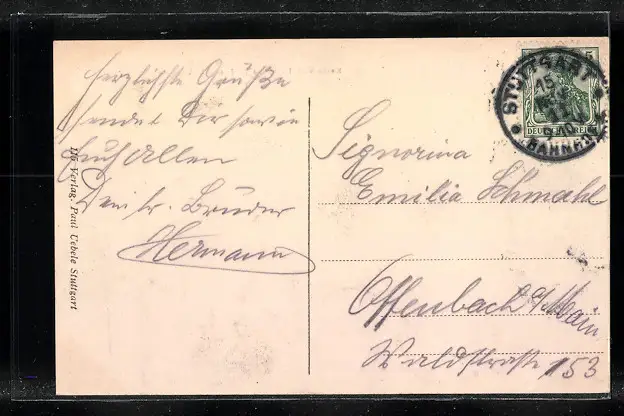 herzlichste Grüße
sendet Dir sowie
Euch Allen
Dein tr. Bruder
Hermann
116 Verlag. Paul Uebele Stuttgart
STUTTGART
15
9-10
BAHNHOF
DEUTSCHES REICH
Signorina
Emilia Schmahl
Offenbach a/Main
Waldstraße 153